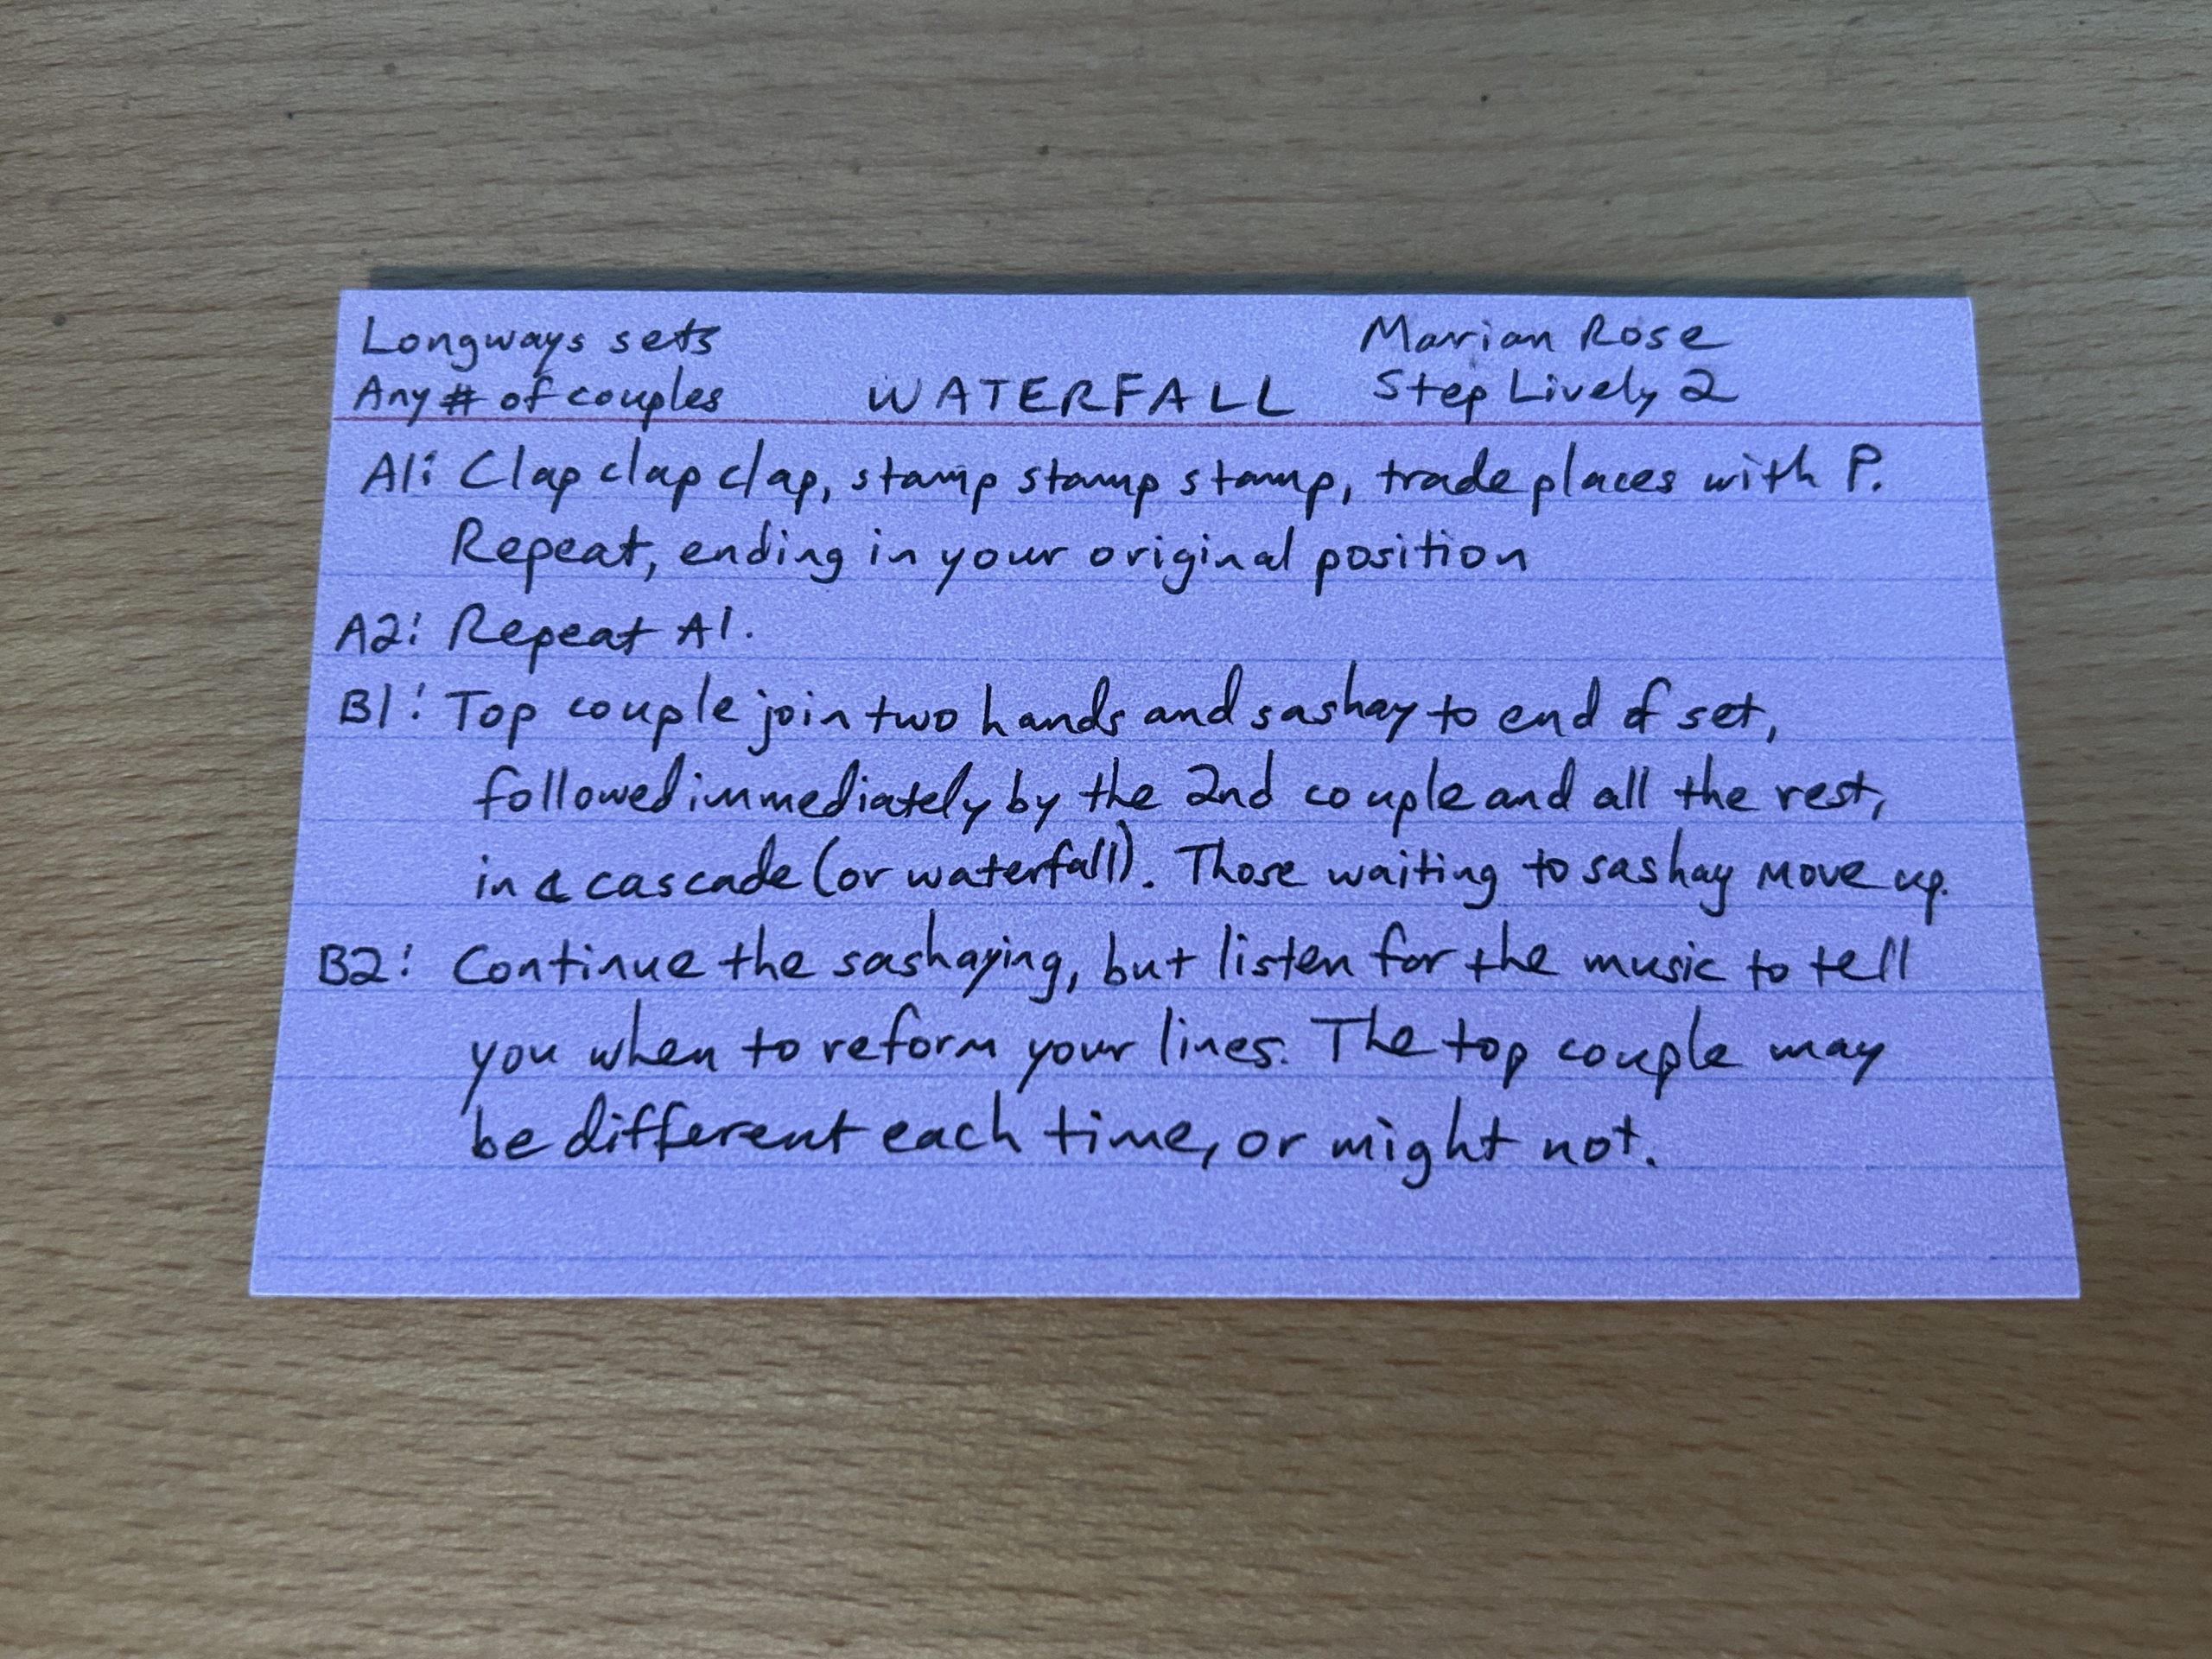 Longways sets
Marian Rose
Any # of couples WATERFALL Step Lively 2
A1: Clap clap clap, stamp stamp stamp, trade places with P.
Repeat, ending in your original position
A2: Repeat A1.
B1: Top couple join two hands and sashay to end of set,
followed immediately by the 2nd couple and all the rest,
in a cascade (or waterfall). Those waiting to sashay move up.
B2: Continue the sashaying, but listen for the music to tell
you when to reform your lines. The top couple may
be different each time, or might not.